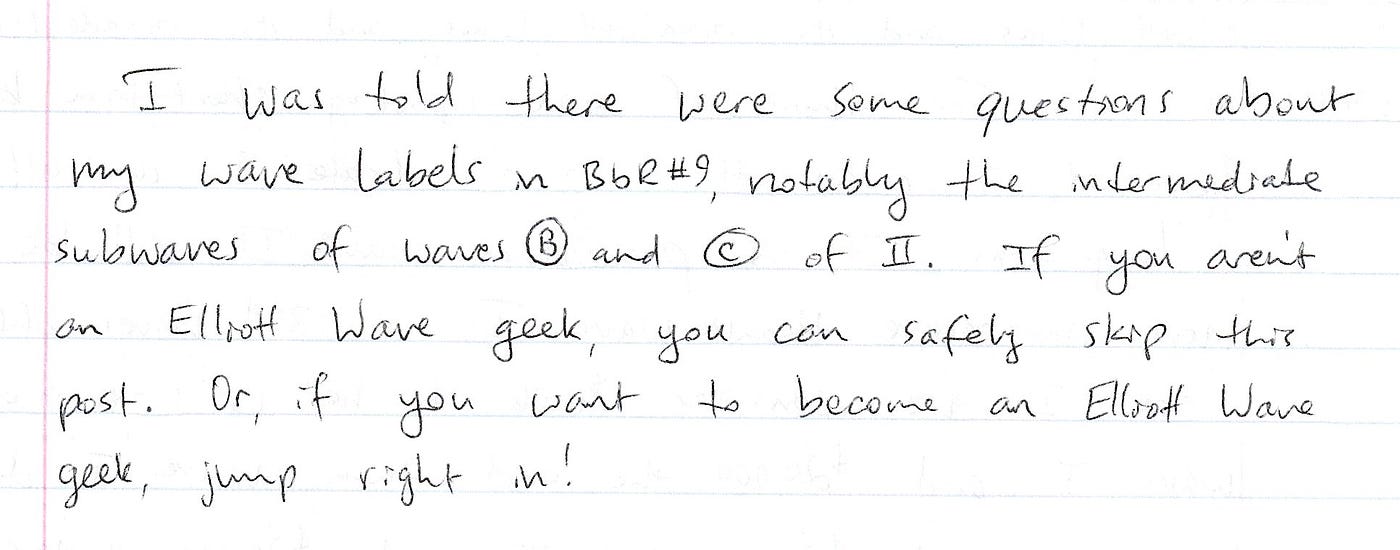 I was told there were some questions about
my wave labels in BbR #9, notably the intermediate
subwaves of waves Ⓑ and Ⓒ of II. If you aren't
an Elliott Wave geek, you can safely skip this
post. Or, if you want to become an Elliott Wave
geek, jump right in!